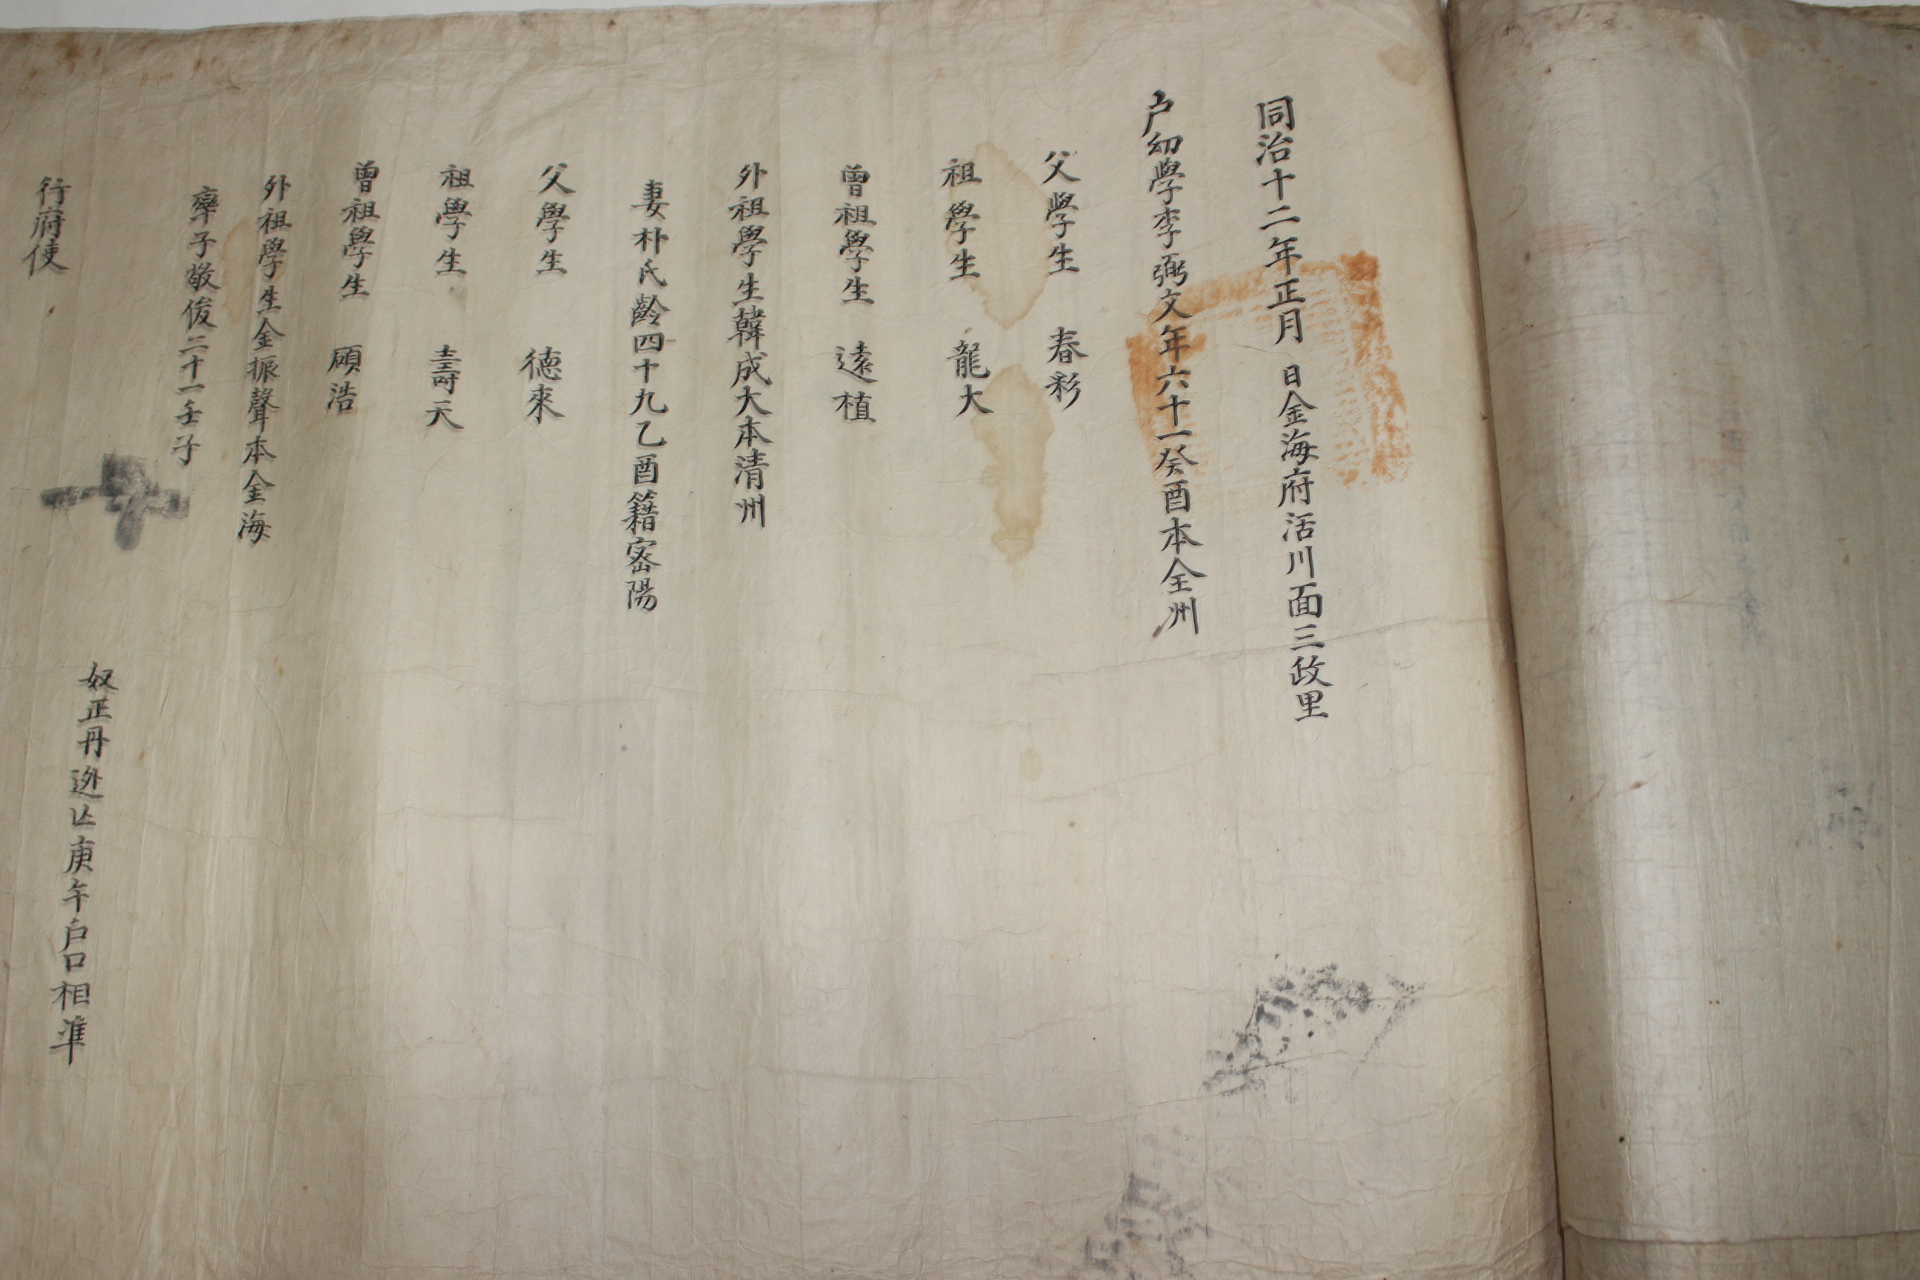 同治十二年正月 日金海府活川面三政里
戶幼學李弼文年六十一癸酉本全州
父學生 春彩
祖學生 龍大
曾祖學生 遠植
外祖學生韓成大本清州
妻朴氏齡四十九乙酉籍密陽
父學生 德來
祖學生 壽天
曾祖學生 碩浩
外祖學生金振聲本金海
率子敬俊二十一壬子
奴正丹迯亡庚午戶口相準
行府使